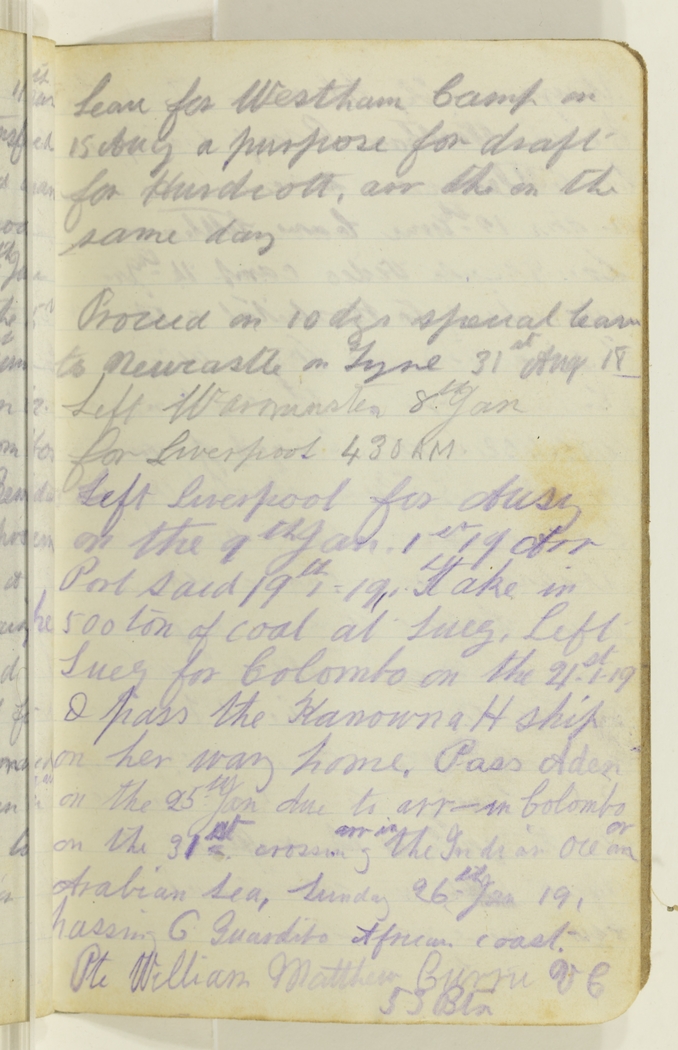 Leav for Westham Camp on
15 Aug a purpose for draft
for Hurdcott, arr the on the
same day
Proceed on 10 dys special leav
to Newcastle on Tyne 31st Aug 18
Left Warminster 8th Jan
for Liverpool 430 AM
Left Liverpool for Ausy
on the 9th Jan. 19 Arr
Port Said 19th-1-19, take in
500 ton of coal at Suez. Left
Suez for Colombo on the 21st-1-19
& pass the Kanowna H ship
on her way home. Pass Aden
on the 25th Jan due to arr in Colombo
on the 31st. crossing arr in the Indian Ocean or
Arabian Sea, Sunday 26th Jan 19,
passing C Guardifo African coast.
Pte William Matthew Currie V C
53 Btn